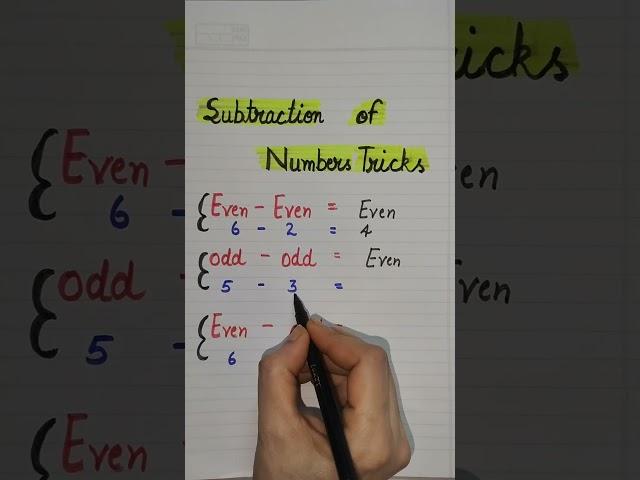 Subtraction of
Numbers Tricks
Even - Even = Even
6 - 2 = 4
odd - odd = Even
5 - 3 =
Even -
6